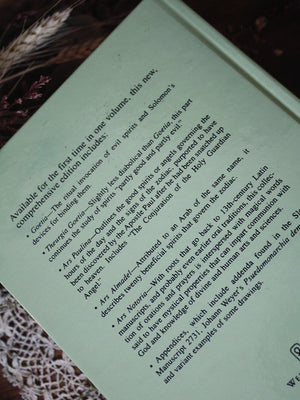 Available for the first time in one volume, this new,
comprehensive edition includes:
• Goetia—The ritual invocation of evil spirits and Solomon's
devices for binding them.
• Theurgia Goetia—Slightly less diabolical than Goetia, this part
continues the study of spirits, "partly good and partly evil."
• Ars Paulina—Outlines the good spirits or angels governing the
hours of the day and signs of the zodiac, purported to have
been discovered by the Apostle Paul after he had been snatched up
to "The Conjuration of the Holy Guardian
Angel."
• Ars Almadel—Attributed to an Arab of the same name, it
describes twenty beneficial spirits that govern the zodiac.
• Ars Notoria—With roots that go back to 13th-century Latin
manuscripts, and probably even earlier oral traditions, this collec-
tion of orations and prayers is interspersed with magical words
said to have mystical properties that can impart communion with
God and knowledge of divine and human arts and sciences.
• Appendices, which include addenda found in the
Manuscript 2731, Johann Weyer's Pseudomonarchia
and variant examples of some drawings.